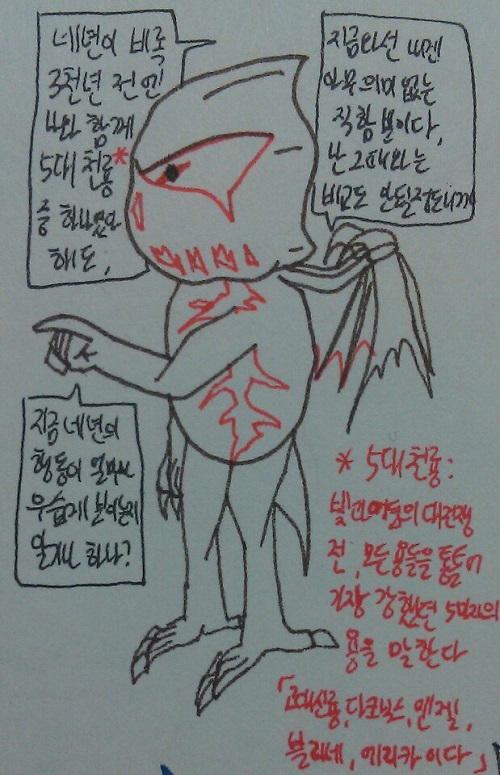 네년이 비록
3천년 전엔
나와 함께
5대 천룡*
중 하나였다
해도,
지금와선
아무 의미 없는
직함뿐이다,
난 그때와는
비교도 안될정도니까
지금 네년의
행동이 얼마나
우습게 보이는지
알기나 하나?
* 5대천룡:
빛과 어둠의 대전쟁
전, 모든 용들을 통틀어
가장 강했던 5마리의
용을 말한다
「고대신룡, 다크닉스, 엔젤,
에리카 이다」